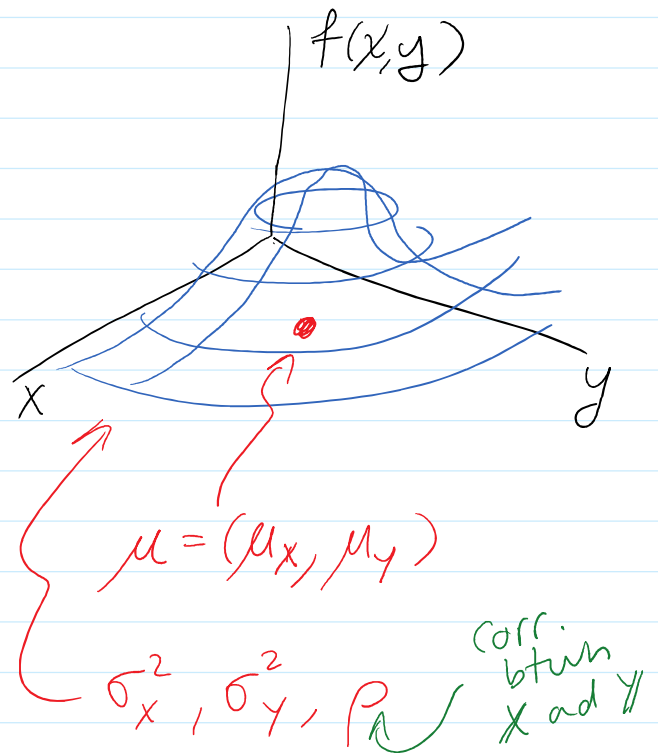 f(x,y)
x
y
μ = (μ_X, μ_Y)
σ²_X, σ²_Y, ρ
corr.
btwn
X ad Y